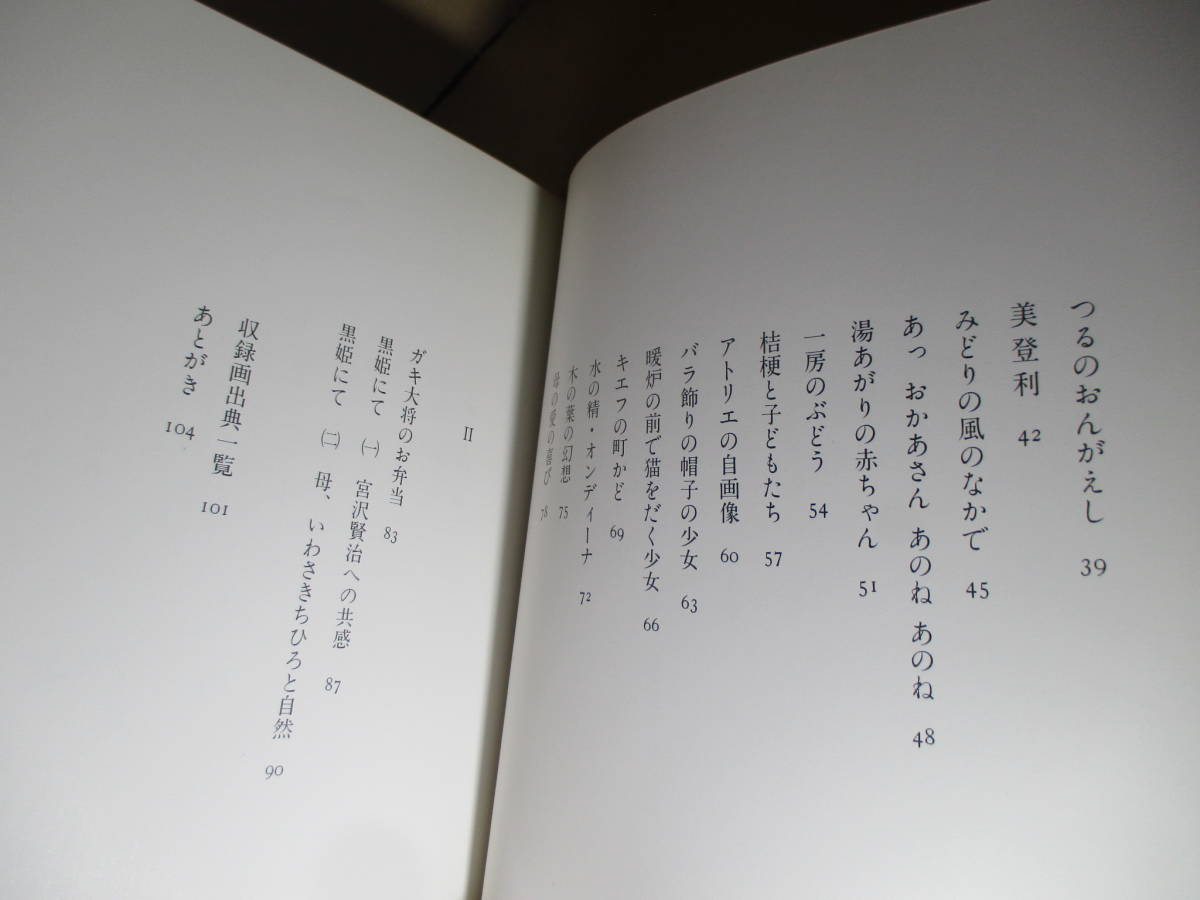 つるのおんがえし 39
美登利 42
みどりの風のなかで 45
あっ おかあさん あのね あのね 48
湯あがりの赤ちゃん 51
一房のぶどう 54
桔梗と子どもたち 57
アトリエの自画像 60
バラ飾りの帽子の少女 63
暖炉の前で猫をだく少女 66
キエフの町かど 69
水の精・オンディーナ 72
木の葉の幻想 75
母の愛の喜び 78
II
ガキ大将のお弁当 83
黒姫にて ㈠ 宮沢賢治への共感 87
黒姫にて ㈡ 母、いわさきちひろと自然 90
収録画出典一覧 101
あとがき 104